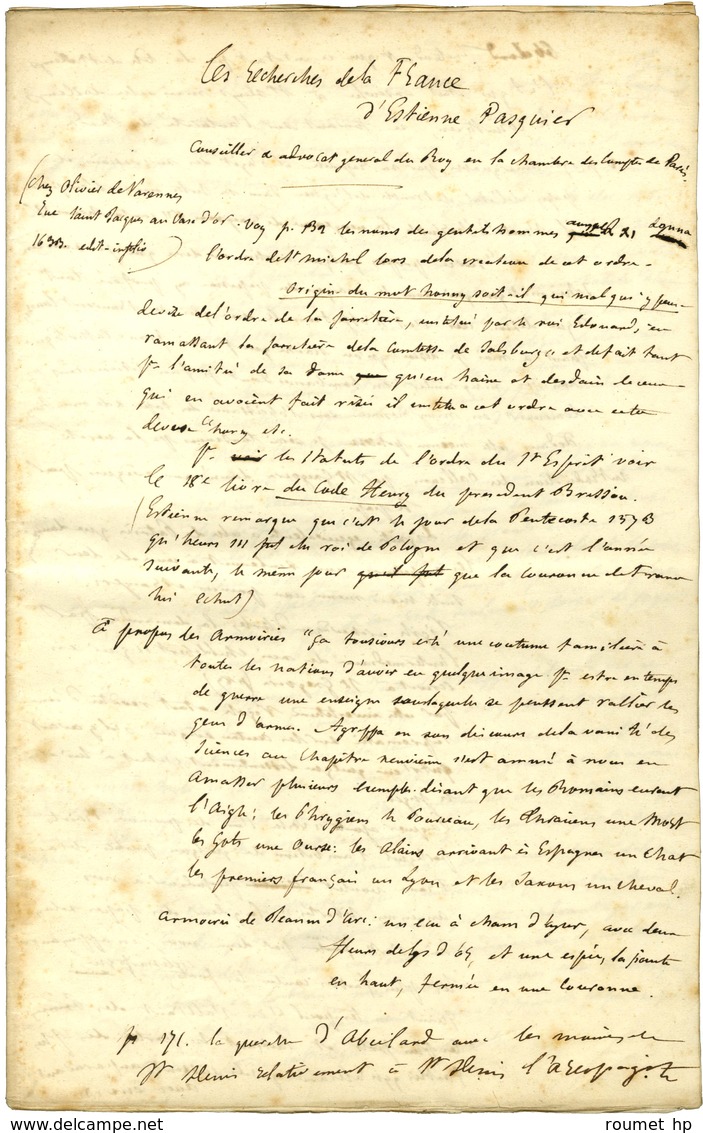 Les recherches de la France
d'Estienne Pasquier
Conseiller & advocat general du Roy en la chambre des Comptes de Paris,
(chez Olivier de Varennes
Rue Saint Jacques au Vase d'or. Voy p. 132 les noms des gentilshommes auxquels L XI donna
1633. edit. in folio)
l'ordre de St michel lors de la creation de cet ordre.
Origine du mot honny soit-il qui mal qui y pense
devise de l'ordre de la Jarretière, institué par le roi Edouard, en
ramassant la jarretière de la Comtesse de Salsburge et de fait tant
pr l'amitié de sa dame que qu'en haine et desdain de ceux
qui en avoient fait risée il institua cet ordre avec cette
devise honny etc.
Pr voir les Statuts de l'ordre du St Esprit voir
le 18e livre du Code Henry du president Brisson.
(Estienne remarque que c'est le jour de la Pentecoste 1573
qu'henri III fut élu roi de Pologne et que c'est l'année
suivante, le même jour qu'il fut que la couronne de France
lui echut)
à propos des Armoiries "ça tousiours esté une coutume familière à
toutes les nations d'avoir en quelque image pr estre en temps
de guerre une enseigne sous laquelle se peussent rallier les
gens d'armes. Agrippa en son discours de la vanité des
Sciences au Chapitre neuvieme s'est amusé à nous en
Amasser plusieurs exemples disant que les Romains eurent
l'Aigle; les Phrygiens le Pourceau, les Thraciens une Mort
les Gots une Ourse: les Alains arrivant ès Espagnes un Chat
les premiers français un Lyon et les Saxons un cheval.
Armoirie de Jeanne d'Arc: un ecu à cham d'azur, avec deux
fleurs de lys d'or, et une espée, la pointe
en haut, fermée en une couronne.
p 171. la querelle d'Abeilard avec les moines de
St Denis relativement à St Denis l'areopagite
roumet hp